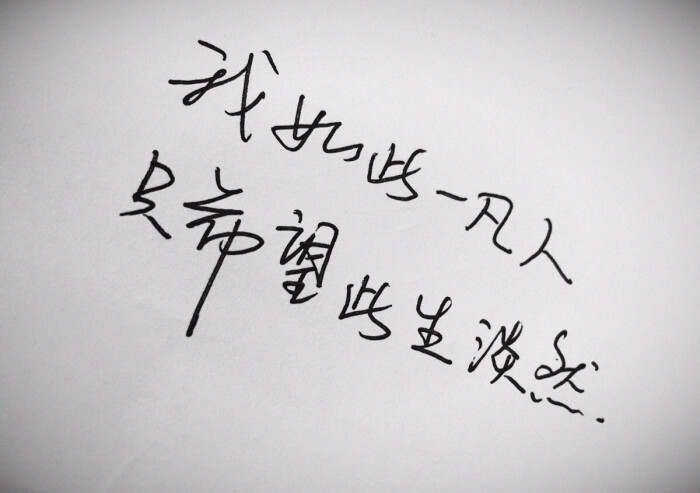 我如此一凡人
只希望此生淡然.